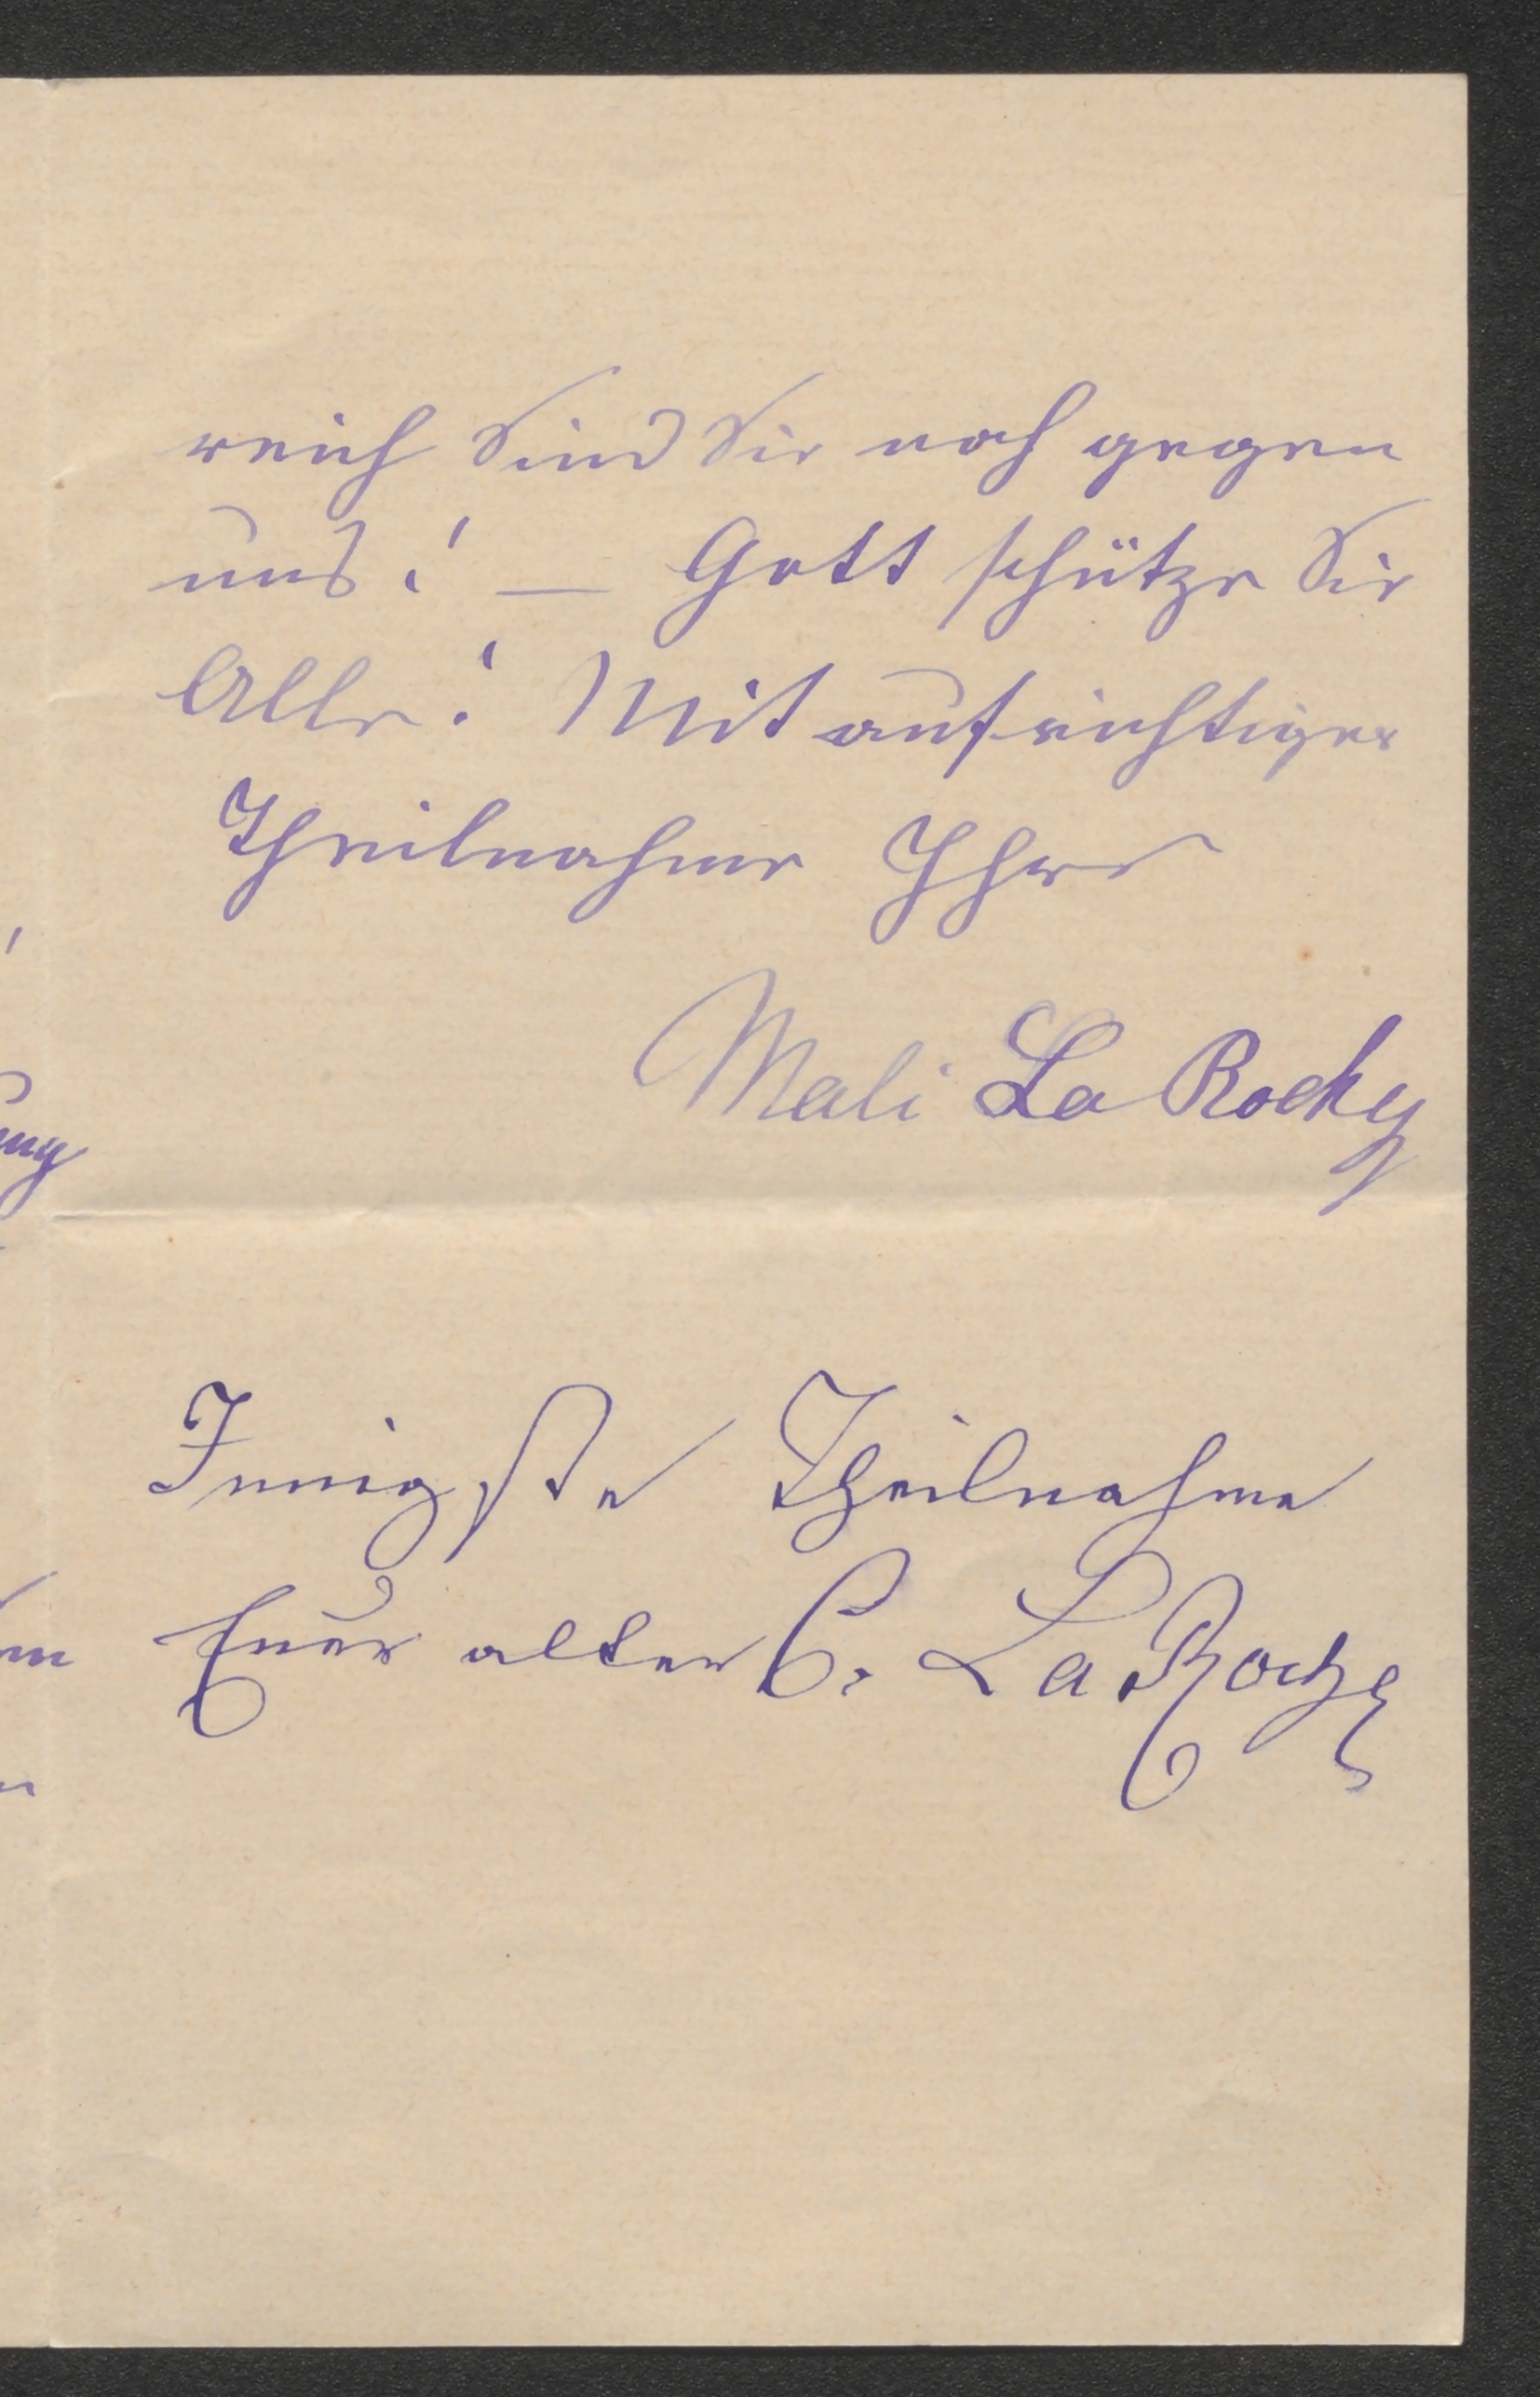 reich sind Sie noch gegen
uns! — Gott schütze Sie
Alle! Mit aufrichtiger
Theilnahme Ihre
Mali La Roche
Innigste Theilnahme
Euer alter C. La Roche